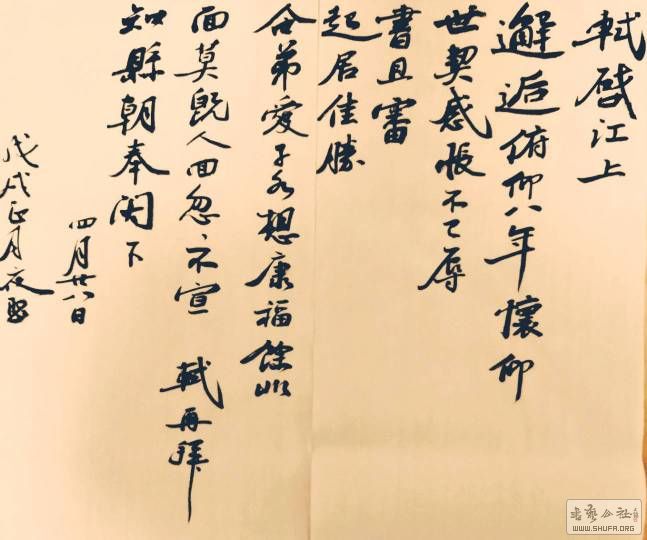 軾啓江上
邂逅俯仰八年懷仰
世契感悵不已辱
書且審
起居佳勝
令弟愛子各想康福餘非
面莫既人回忽〻不宣 軾再拜
知縣朝奉閣下
四月廿八日
戊戌正月夜
書藝公社
WWW.SHUFA.ORG